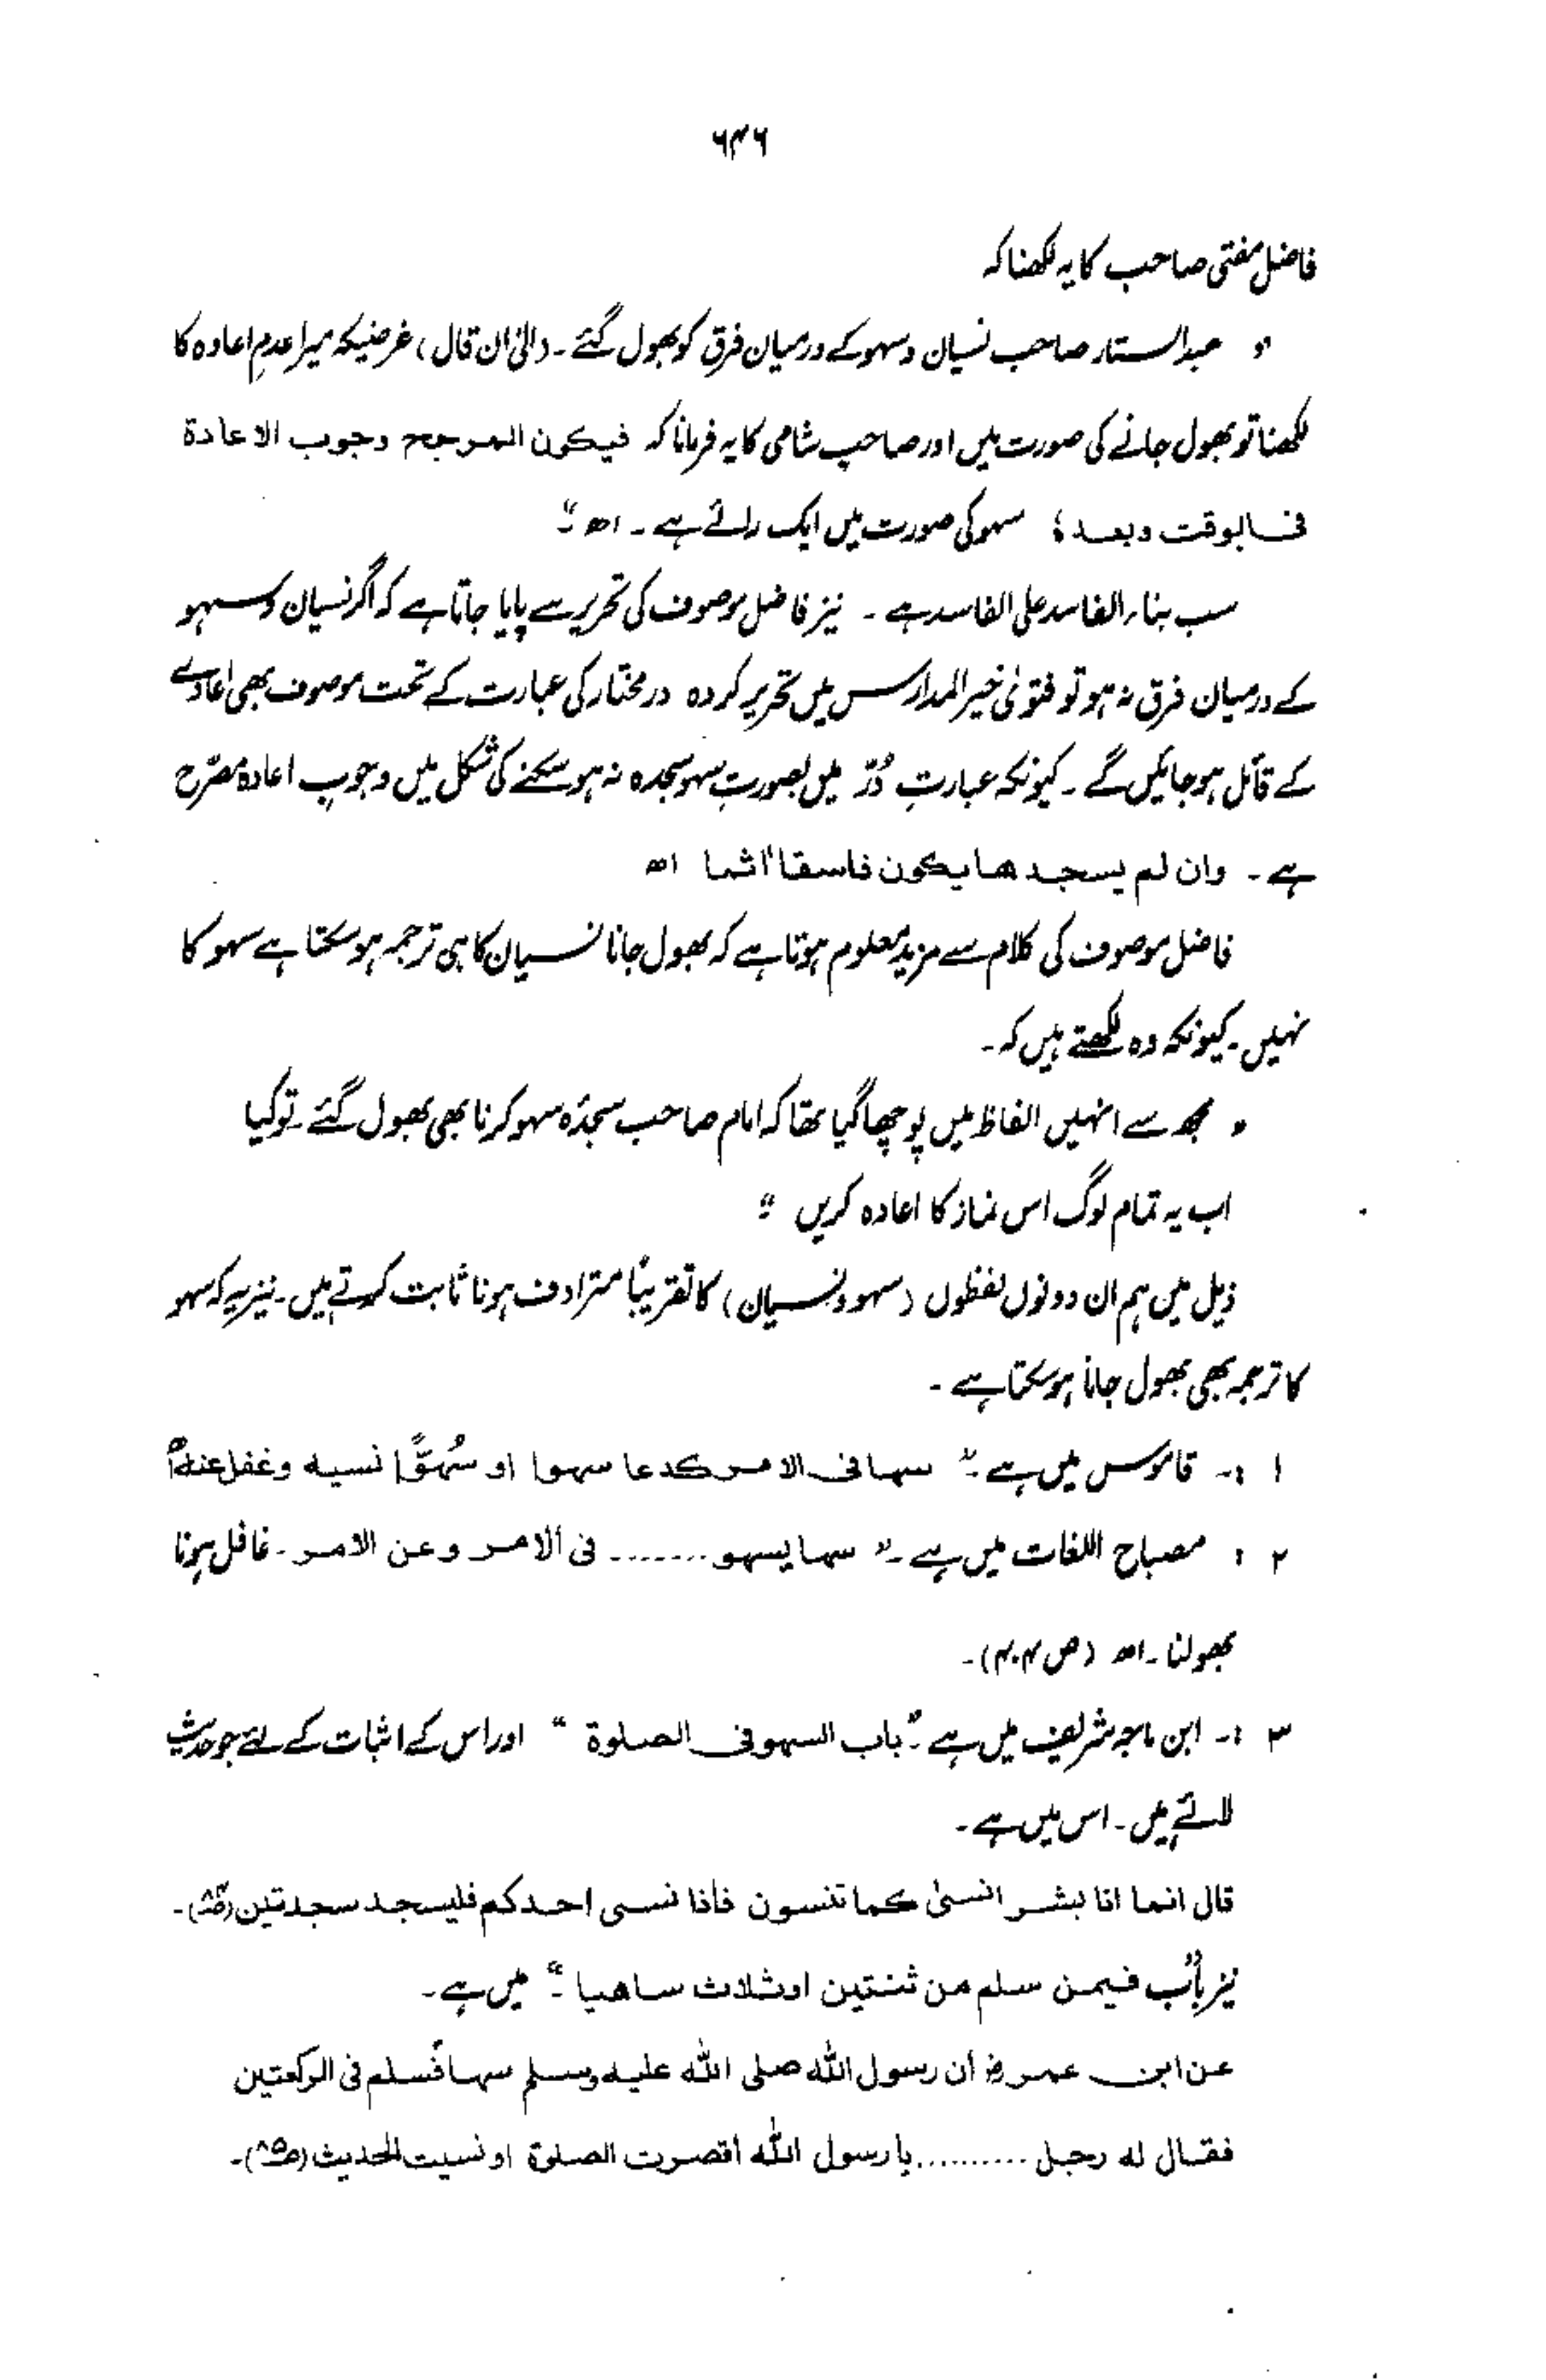 ۶۴۶
فاضل مفتی صاحب کا یہ لکھنا کہ
" عبدالستار صاحب نسیان و سہو کے درمیان فرق کو بھول گئے ۔ (الیٰ ان قال) غرضیکہ میرا عدمِ اعادہ کا
لکھنا تو بھول جانے کی صورت میں اور صاحبِ شامی کا یہ فرمانا کہ فیکون المرجح وجوب الاعادة
فی الوقت وبعدہ؛ سہو کی صورت میں ایک رائے ہے ۔ اھ "
سب بناء الفاسد علی الفاسد ہے ۔ نیز فاضل موصوف کی تحریر سے پایا جاتا ہے کہ اگر نسیان و سہو
کے درمیان فرق نہ ہو تو فتویٰ خیر المدارس میں تحریر کردہ درمختار کی عبارت کے تحت موصوف بھی اعادے
کے قائل ہو جائیں گے ۔ کیونکہ عبارتِ دُرّ میں بصورتِ سہو سجدہ نہ ہو سکنے کی شکل میں وجوبِ اعادہ مصرّح
ہے ۔ وان لم یسجدھا یکون فاسقا اٰثما اھ
فاضل موصوف کی کلام سے مزید معلوم ہوتا ہے کہ بھول جانا نسیان کا ہی ترجمہ ہو سکتا ہے سہو کا
نہیں ۔ کیونکہ وہ لکھتے ہیں کہ ۔
" مجھ سے انہیں الفاظ میں پوچھا گیا تھا کہ امام صاحب سجدۂ سہو کرنا بھی بھول گئے ۔ تو کیا
اب یہ تمام لوگ اس نماز کا اعادہ کریں "
ذیل میں ہم ان دونوں لفظوں (سہو و نسیان) کا تقریباً مترادف ہونا ثابت کرتے ہیں ۔ نیز یہ کہ سہو
کا ترجمہ بھی بھول جانا ہو سکتا ہے ۔
۱ :۔ قاموس میں ہے ۔" سہا فی الامر کدعا سہوا او سُہُوًّا نسیہ وغفل عنہ"
۲ : مصباح اللغات میں ہے ۔" سہا یسہو ........ فی الامر وعن الامر ۔ غافل ہونا
بھولنا ۔ اھ (ص ۴۰۴) ۔
۳ :۔ ابن ماجہ شریف میں ہے ۔" باب السہو فی الصلوة " اور اس کے اثبات کے لئے جو حدیث
لائے ہیں ۔ اس میں ہے ۔
قال انما انا بشر انسیٰ کما تنسون فاذا نسی احدکم فلیسجد سجدتین (ص۸۵) ۔
نیز "باب فیمن سلم من ثنتین او ثلاث ساھیا " میں ہے ۔
عن ابن عمرؓ أن رسول اللہ صلی اللہ علیہ وسلم سہا فسلم فی الرکعتین
فقال لہ رجل .......... یا رسول اللہ أقصرت الصلوة او نسیت الحدیث (ص۸۵) ۔